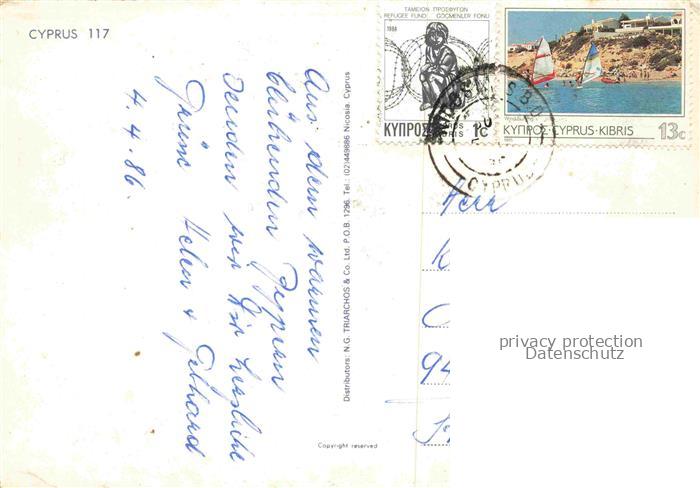 CYPRUS 117
Aus dem warmen
blühenden Zypern
senden wir Dir herzliche
Grüsse Helen + Gebhard
4.4.86.
Distributors: N.G. TRIARCHOS & Co. Ltd. P.O.B. 1296. Tel.: (02)449886 Nicosia, Cyprus
Copyright reserved
ΤΑΜΕΙΟΝ ΠΡΟΣΦΥΓΩΝ
REFUGEE FUND GÖÇMENLER FONU
1984
ΚΥΠΡΟΣ
1c
ΚΥΠΡΟΣ·CYPRUS·KIBRIS 13c
CYPRUS
Herr
94
privacy protection
Datenschutz